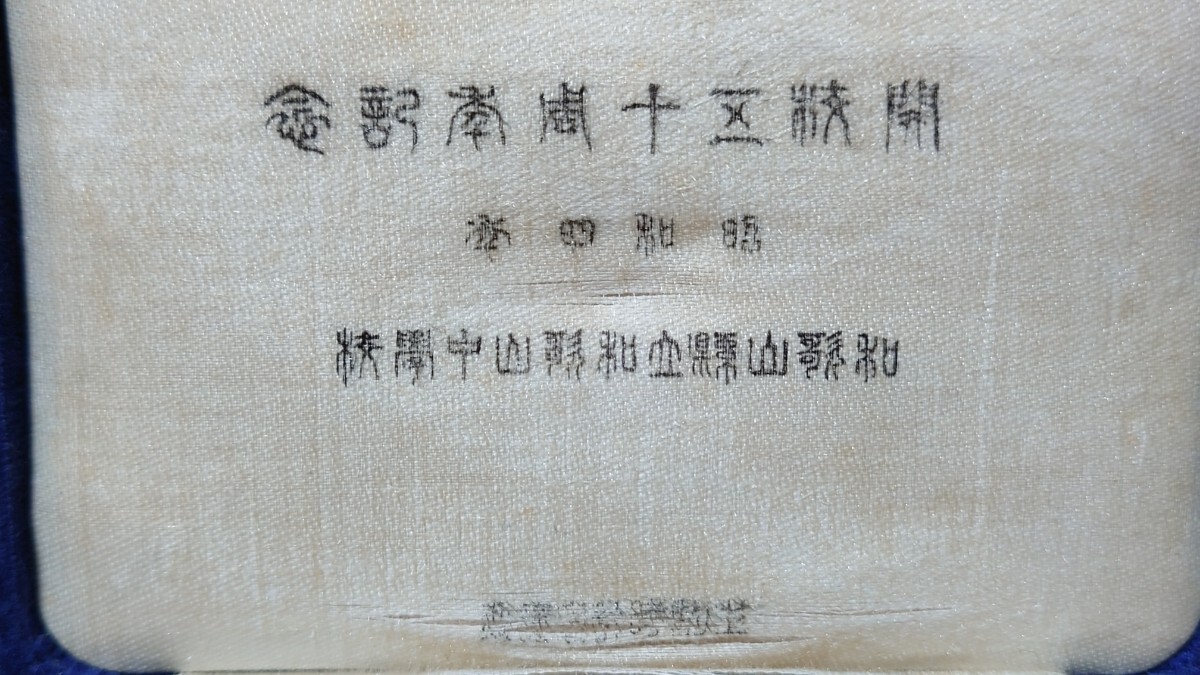 開校五十周年記念
昭和四年
和歌山縣立和歌山中學校